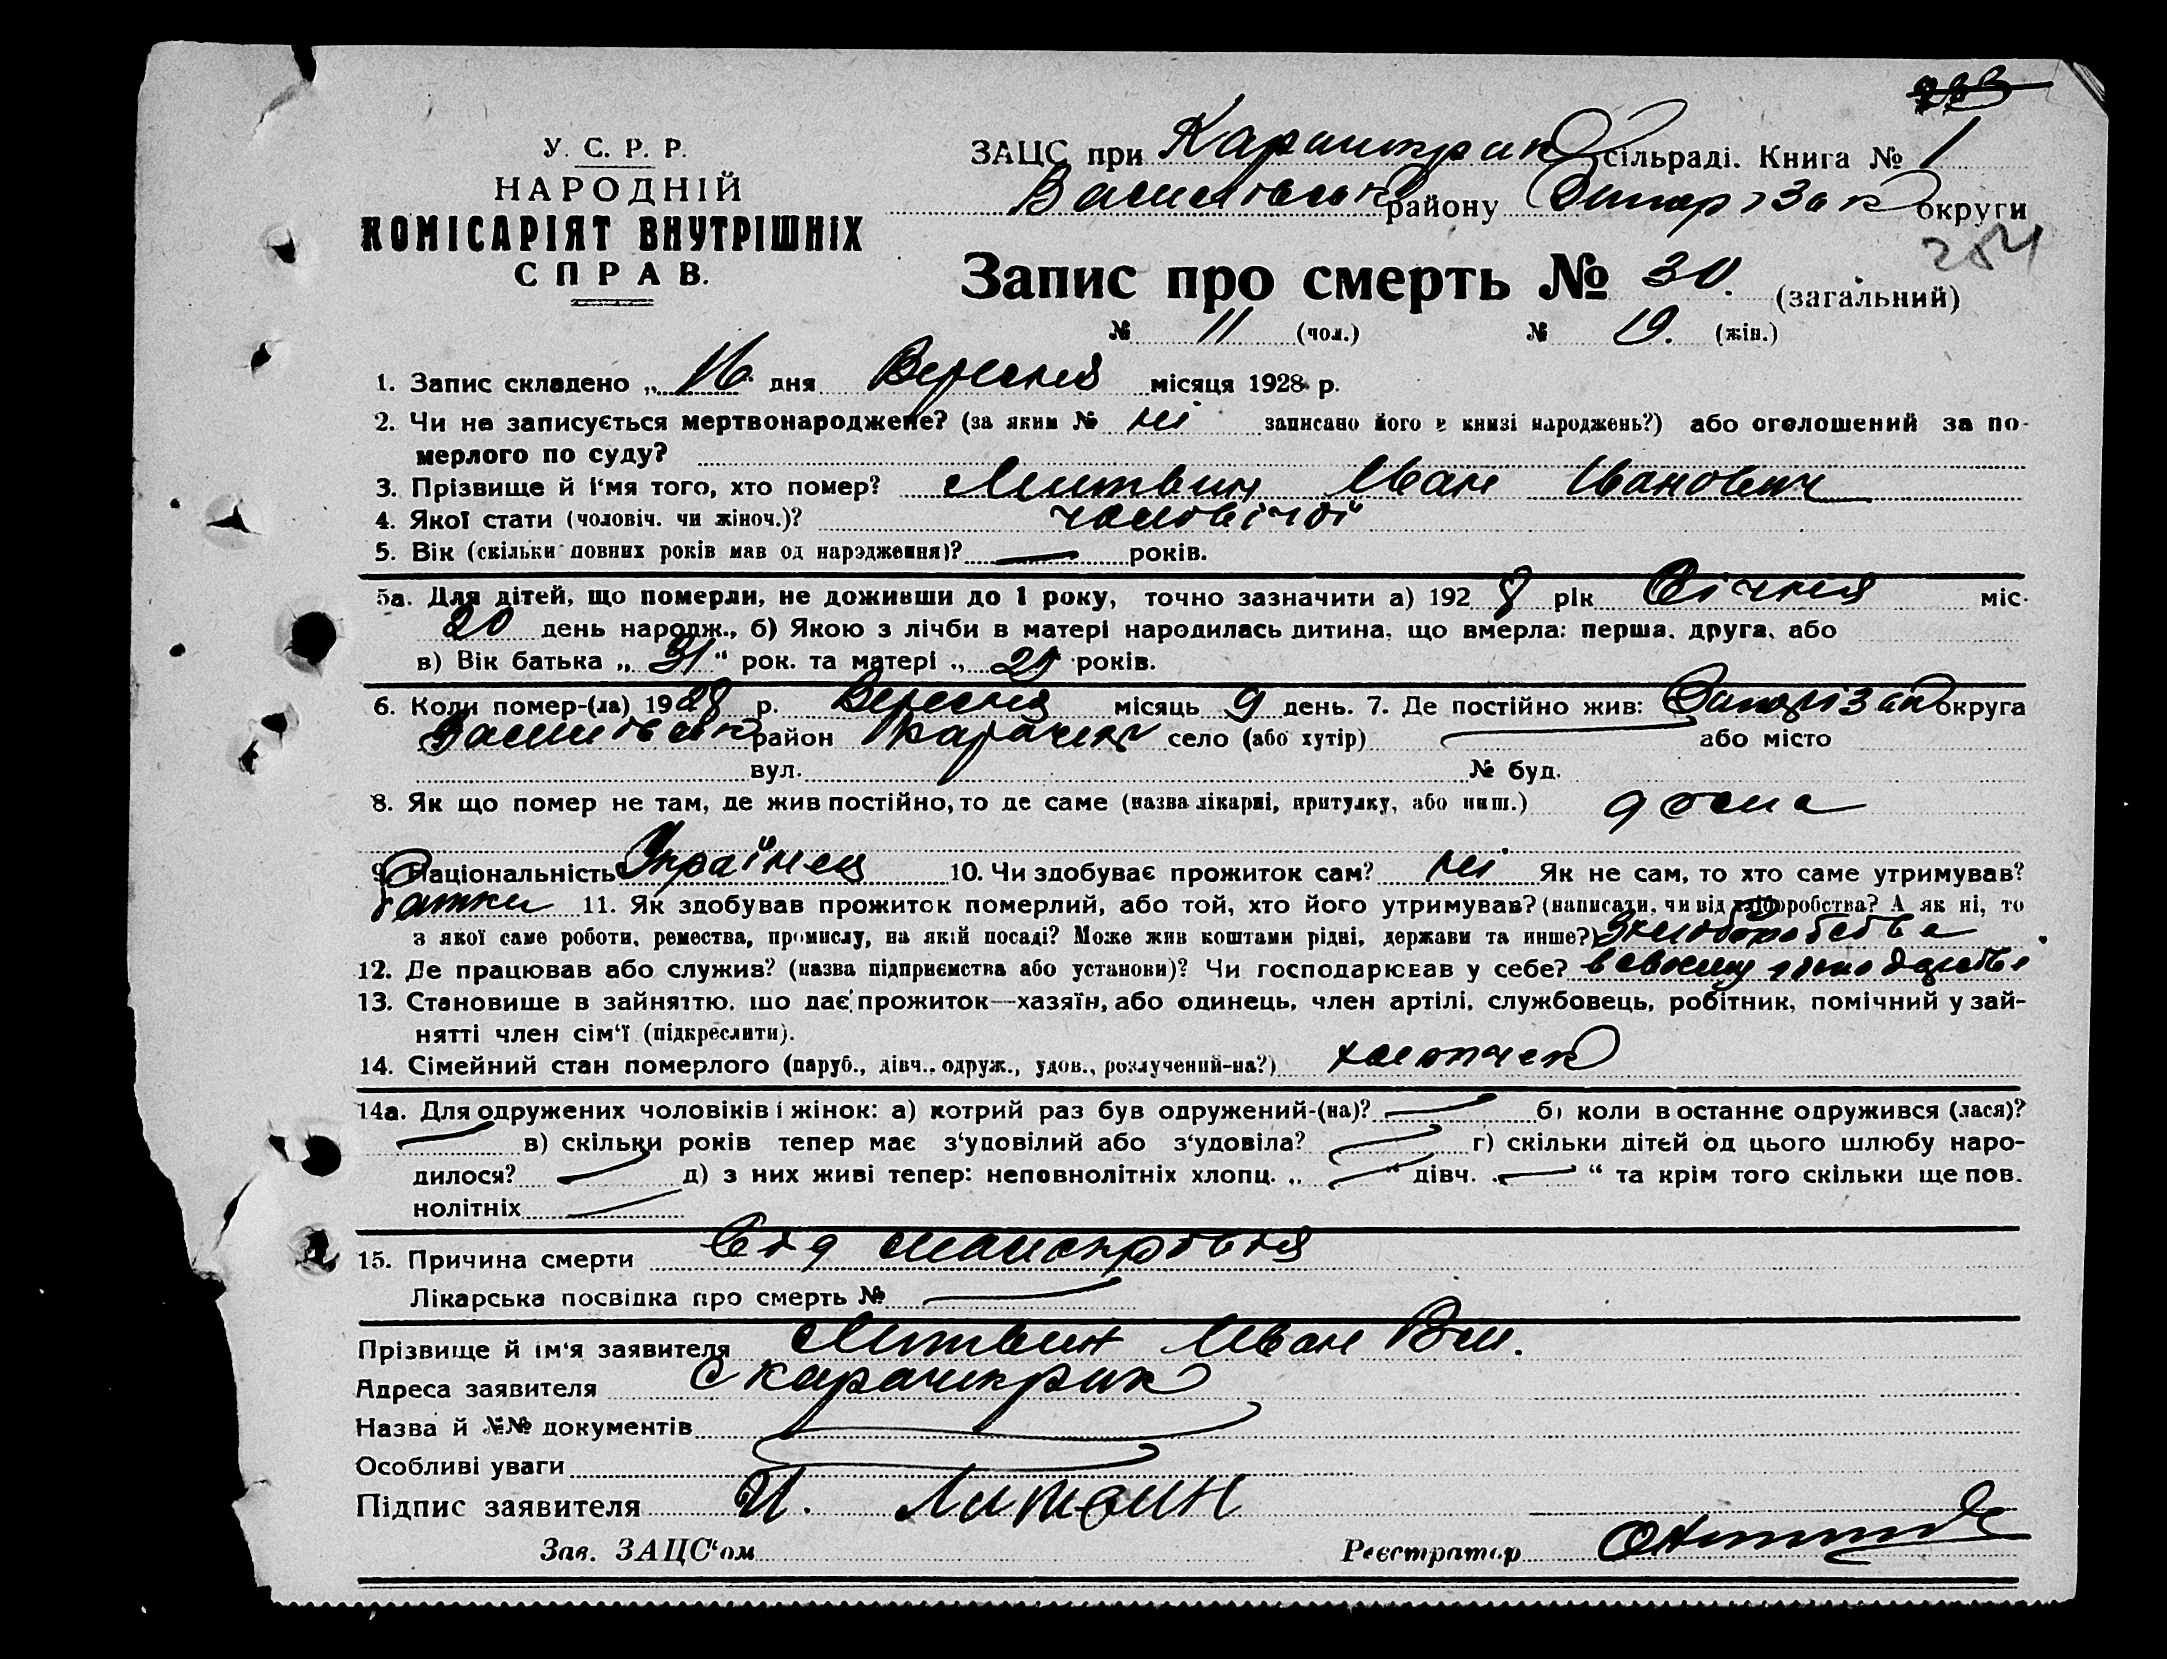 У. С. Р. Р.
НАРОДНІЙ
КОМІСАРІЯТ ВНУТРІШНІХ
СПРАВ.
ЗАЦС при сільраді. Книга № 1
Василівськ району округи
254
Запис про смерть № 30. (загальний)
№ 11 (чол.) № 19. (жін.)
1. Запис складено „ 16 дня Вересня місяця 1928 р.
2. Чи не записується мертвонароджене? (за яким № ні записано його в книзі народжень?) або оголошений за по-
мерлого по суду?
3. Прізвище й ім'я того, хто помер? Литвин Іван Іванович
4. Якої стати (чоловіч. чи жіноч.)? чоловічої
5. Вік (скільки повних років мав од народження)? — років.
5а. Для дітей, що померли, не доживши до 1 року, точно зазначити а) 192 8 рік Січня міс.
20 день народж., б) Якою з лічби в матері народилась дитина, що вмерла: перша, друга, або
в) Вік батька „ 31 “ рок. та матері „ років.
6. Коли помер-(ла) 1928 р. Вересня місяць 9 день. 7. Де постійно жив: округа
район село (або хутір) — або місто
вул. № буд.
8. Як що помер не там, де жив постійно, то де саме (назва лікарні, притулку, або инш.) дома
9. Національність Українец 10. Чи здобуває прожиток сам? ні Як не сам, то хто саме утримував?
батки 11. Як здобував прожиток померлий, або той, хто його утримував? (написати, чи від хліборобства? А як ні, то
з якої саме роботи, ремества, промислу, на якій посаді? Може жив коштами рідні, держави та инше?)
12. Де працював або служив? (назва підприємства або установи)? Чи господарював у себе? в своему
13. Становище в зайняттю, що дає прожиток—хазяїн, або одинець, член артілі, службовець, робітник, помічний у зай-
нятті член сім'ї (підкреслити).
14. Сімейний стан померлого (паруб., дівч., одруж., удов., розлучений-на?) хлопчек
14а. Для одружених чоловіків і жінок: а) котрий раз був одружений-(на)? — б) коли в останнє одружився (лася)?
— в) скільки років тепер має з'удовілий або з'удовіла? — г) скільки дітей од цього шлюбу наро-
дилося? — д) з них живі тепер: неповнолітніх хлопц. „ — “ дівч. „ — “ та крім того скільки ще пов.
нолітніх —
15. Причина смерти Від
Лікарська посвідка про смерть № —
Прізвище й ім'я заявителя Литвин Иван
Адреса заявителя С Карачикрак
Назва й №№ документів
Особливі уваги
Підпис заявителя И. Литвин
Зав. ЗАЦС'ом Реєстратор